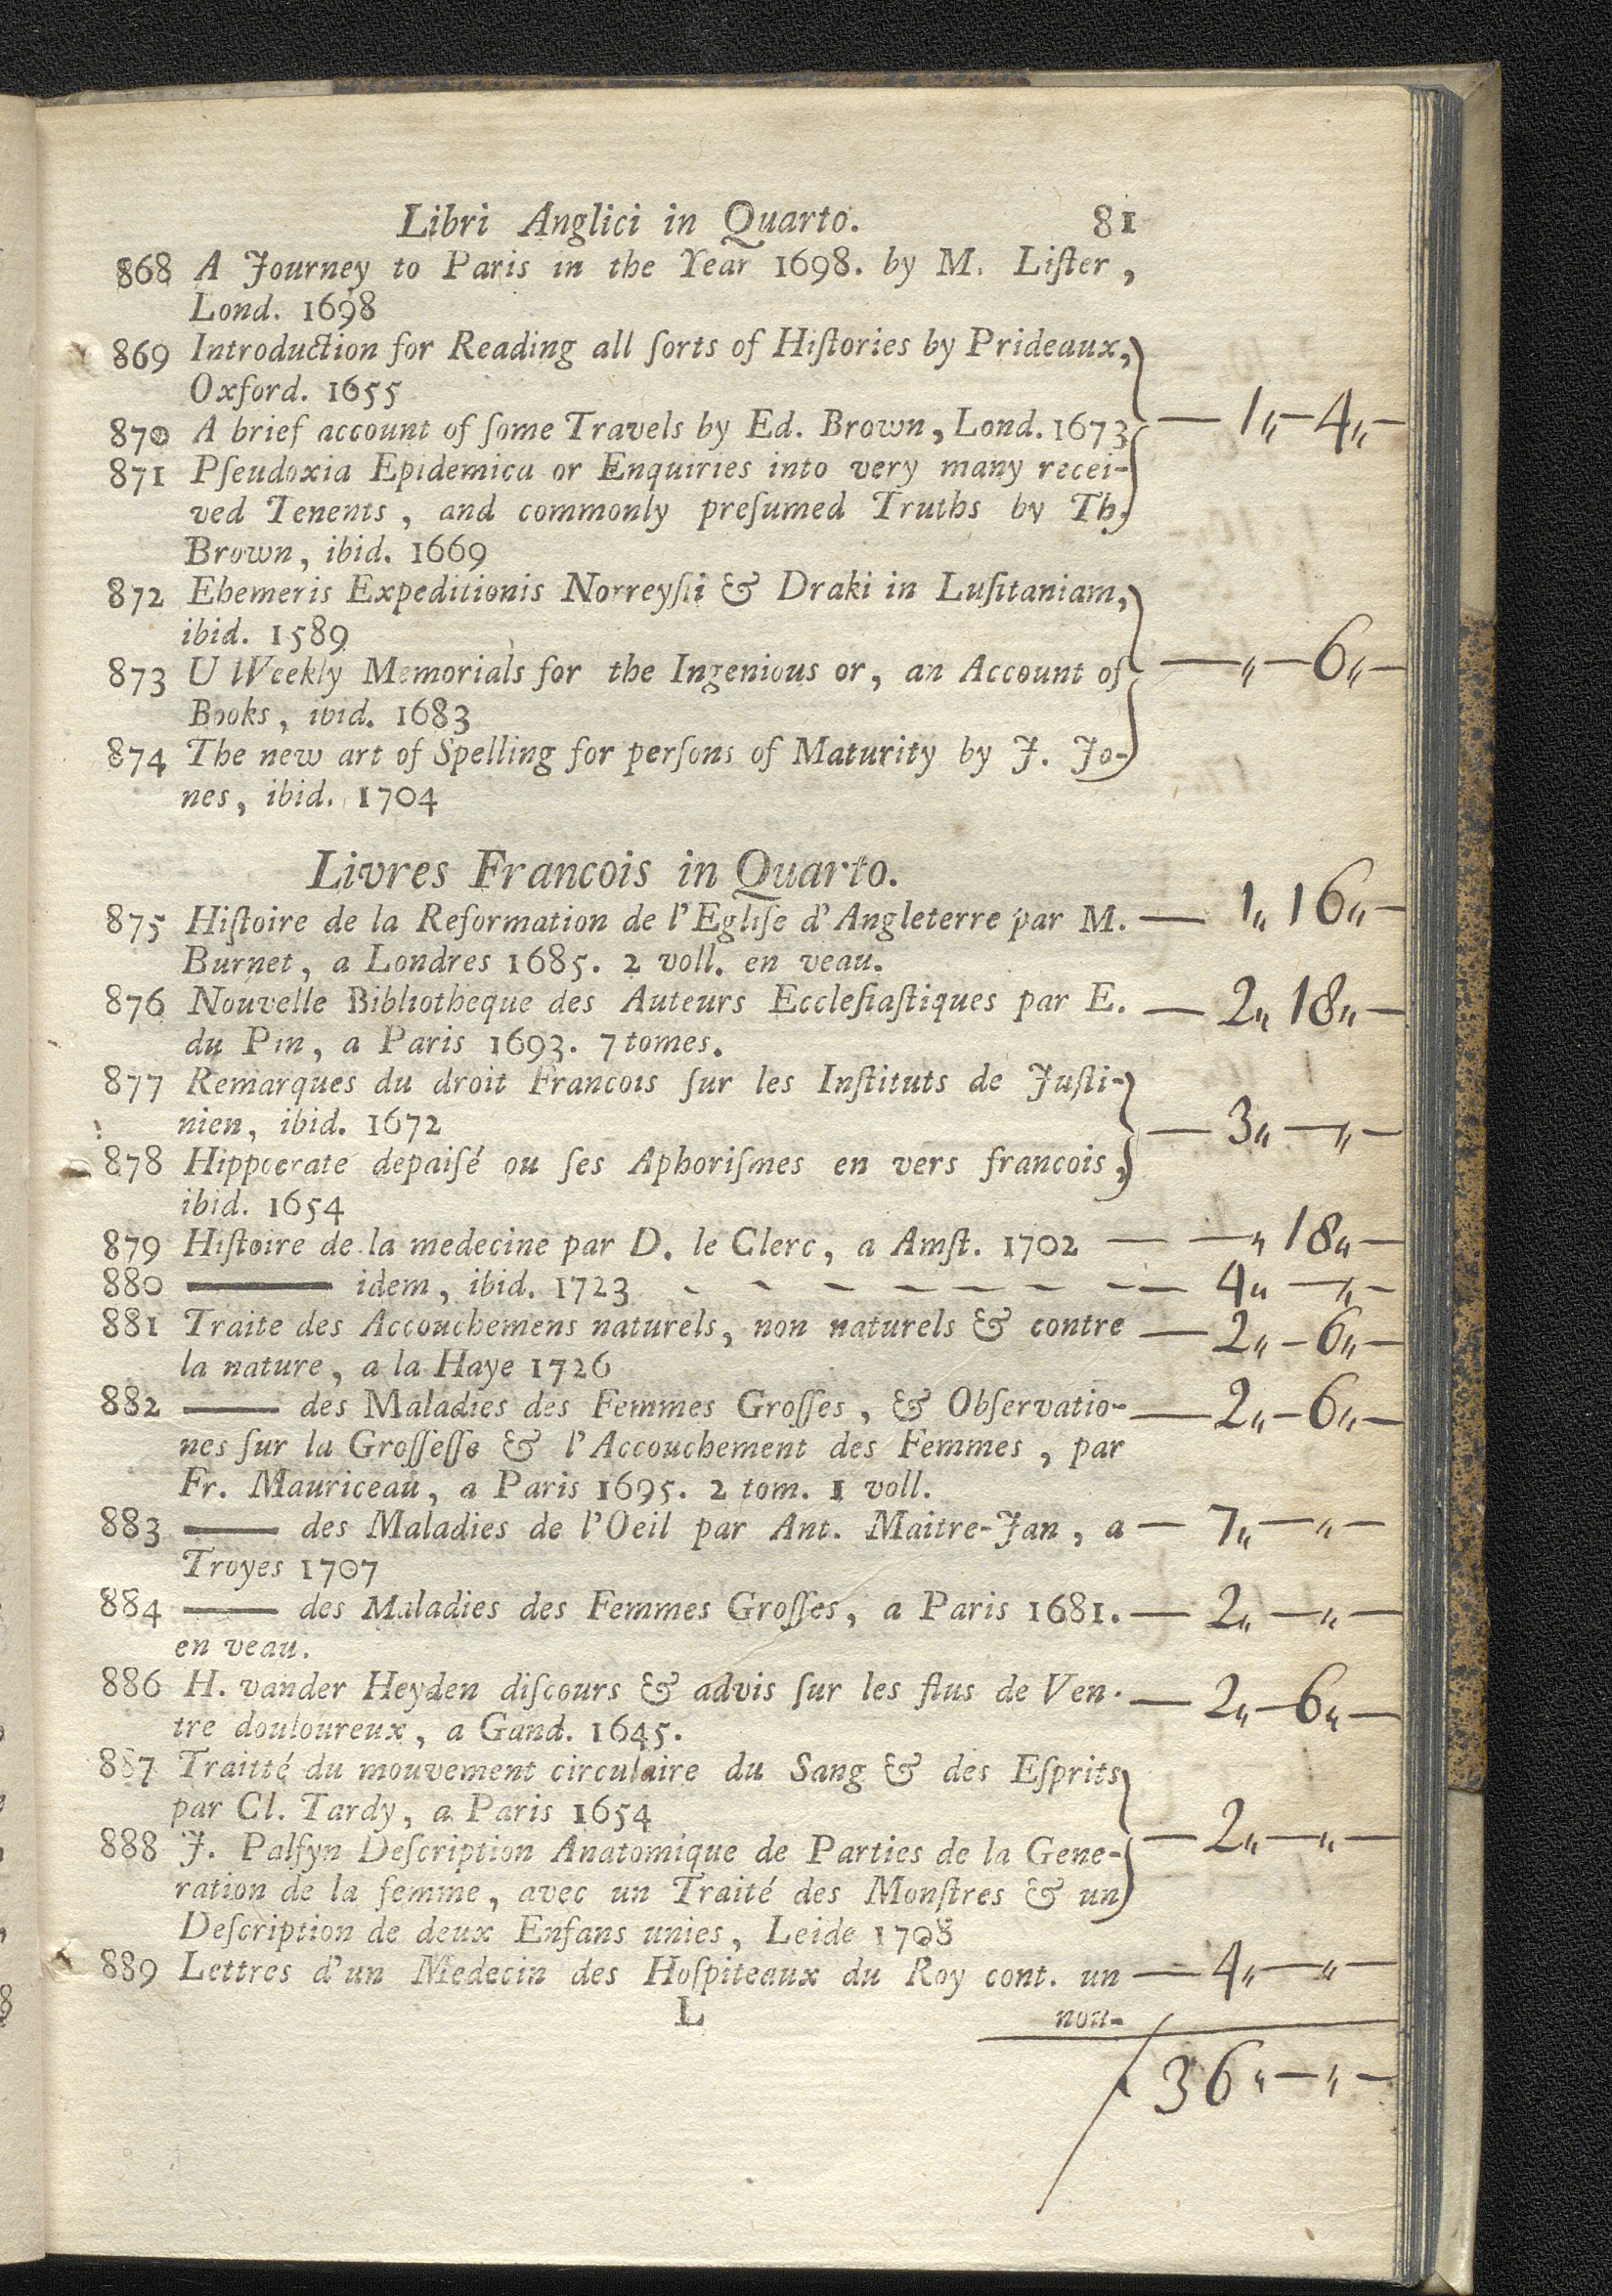 Libri Anglici in Quarto. 81
868 A Journey to Paris in the Year 1698. by M. Liſter,
Lond. 1698
869 Introduction for Reading all ſorts of Hiſtories by Prideaux,
Oxford. 1655
870 A brief account of ſome Travels by Ed. Brown, Lond. 1673 — 1„ — 4„ —
871 Pſeudoxia Epidemica or Enquiries into very many recei-
ved Tenents, and commonly preſumed Truths by Th.
Brown, ibid. 1669
872 Ehemeris Expeditionis Norreyſii & Draki in Luſitaniam,
ibid. 1589
873 U Weekly Memorials for the Ingenious or, an Account of — „ — 6„ —
Books, ibid. 1683
874 The new art of Spelling for perſons of Maturity by J. Jo-
nes, ibid. 1704
Livres Francois in Quarto.
875 Hiſtoire de la Reformation de l'Egliſe d'Angleterre par M. — 1„ 16„ —
Burnet, a Londres 1685. 2 voll. en veau.
876 Nouvelle Bibliotheque des Auteurs Eccleſiaſtiques par E. — 2„ 18„ —
du Pin, a Paris 1693. 7 tomes.
877 Remarques du droit Francois ſur les Inſtituts de Juſti-
nien, ibid. 1672 — 3„ — „ —
878 Hippocrate depaiſé ou ſes Aphoriſmes en vers francois,
ibid. 1654
879 Hiſtoire de la medecine par D. le Clerc, a Amſt. 1702 — — „ 18„ —
880 ——— idem, ibid. 1723 - - - - - - - — 4„ — „ —
881 Traite des Accouchemens naturels, non naturels & contre — 2„ — 6„ —
la nature, a la Haye 1726
882 —— des Maladies des Femmes Groſſes, & Obſervatio- — 2„ — 6„ —
nes ſur la Groſſeſſe & l'Accouchement des Femmes, par
Fr. Mauriceau, a Paris 1695. 2 tom. 1 voll.
883 —— des Maladies de l'Oeil par Ant. Maitre-Jan, a — 7„ — „ —
Troyes 1707
884 —— des Maladies des Femmes Groſſes, a Paris 1681. — 2„ — „ —
en veau.
886 H. vander Heyden diſcours & advis ſur les flus de Ven- — 2„ — 6„ —
tre douloureux, a Gand. 1645.
887 Traitté du mouvement circulaire du Sang & des Eſprits
par Cl. Tardy, a Paris 1654
888 J. Palfyn Deſcription Anatomique de Parties de la Gene- — 2„ — „ —
ration de la femme, avec un Traité des Monſtres & un
Deſcription de deux Enfans unies, Leide 1708
889 Lettres d'un Medecin des Hoſpiteaux du Roy cont. un — 4„ — „ —
L nou-
36 „ — „ —